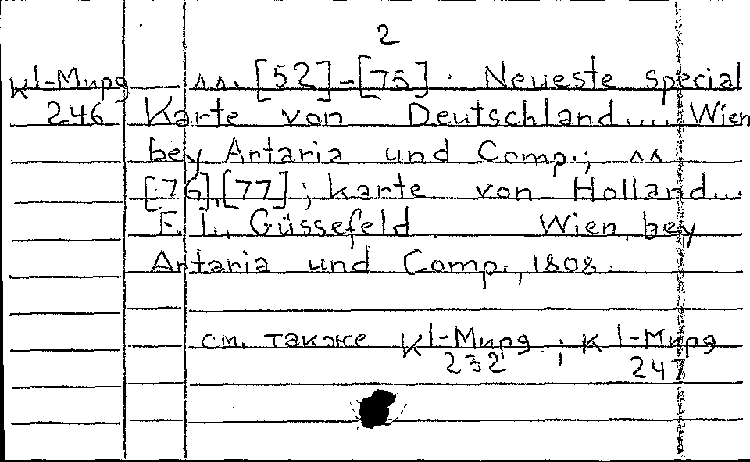 2
К1-Мира лл. [52]-[75]. Neueste special
246 Karte von Deutschland.... Wien
bey Artaria und Comp.; лл
[76],[77]; Karte von Holland...
F. L. Güssefeld Wien, bey
Artaria und Comp., 1808.
см. также К1-Мира ; К1-Мира
232 247